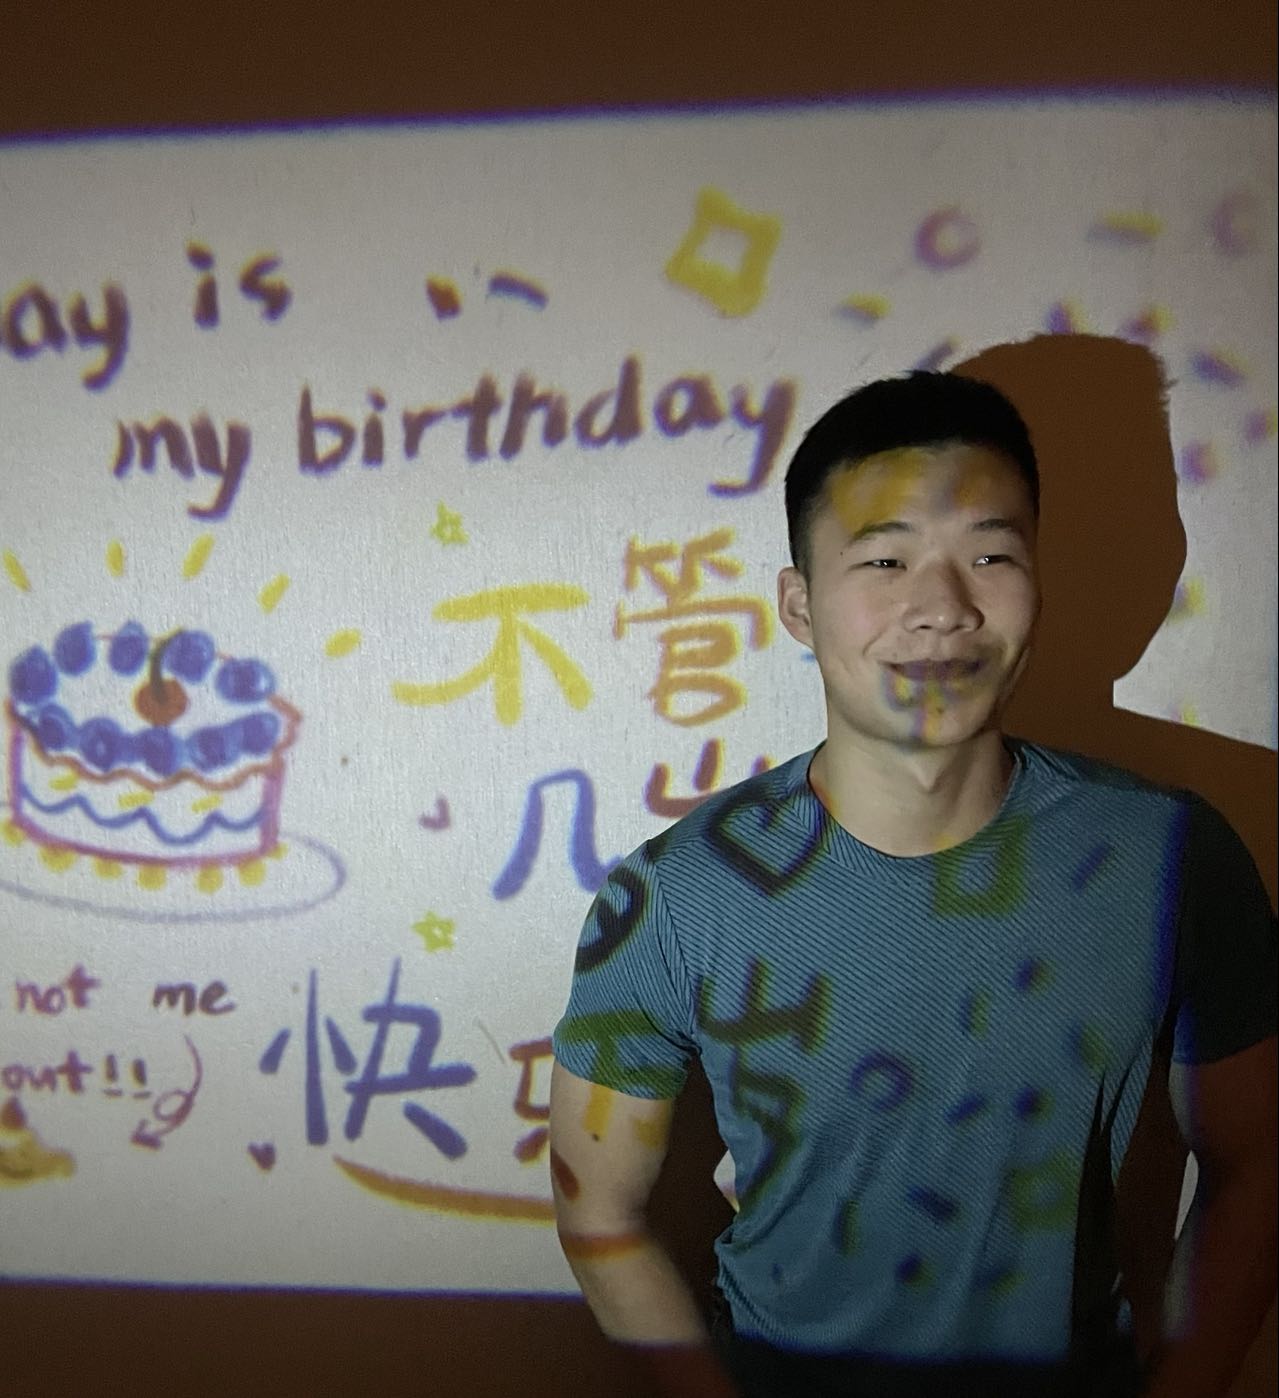 ay is
my birthday
不管
几
not me
out!!
快